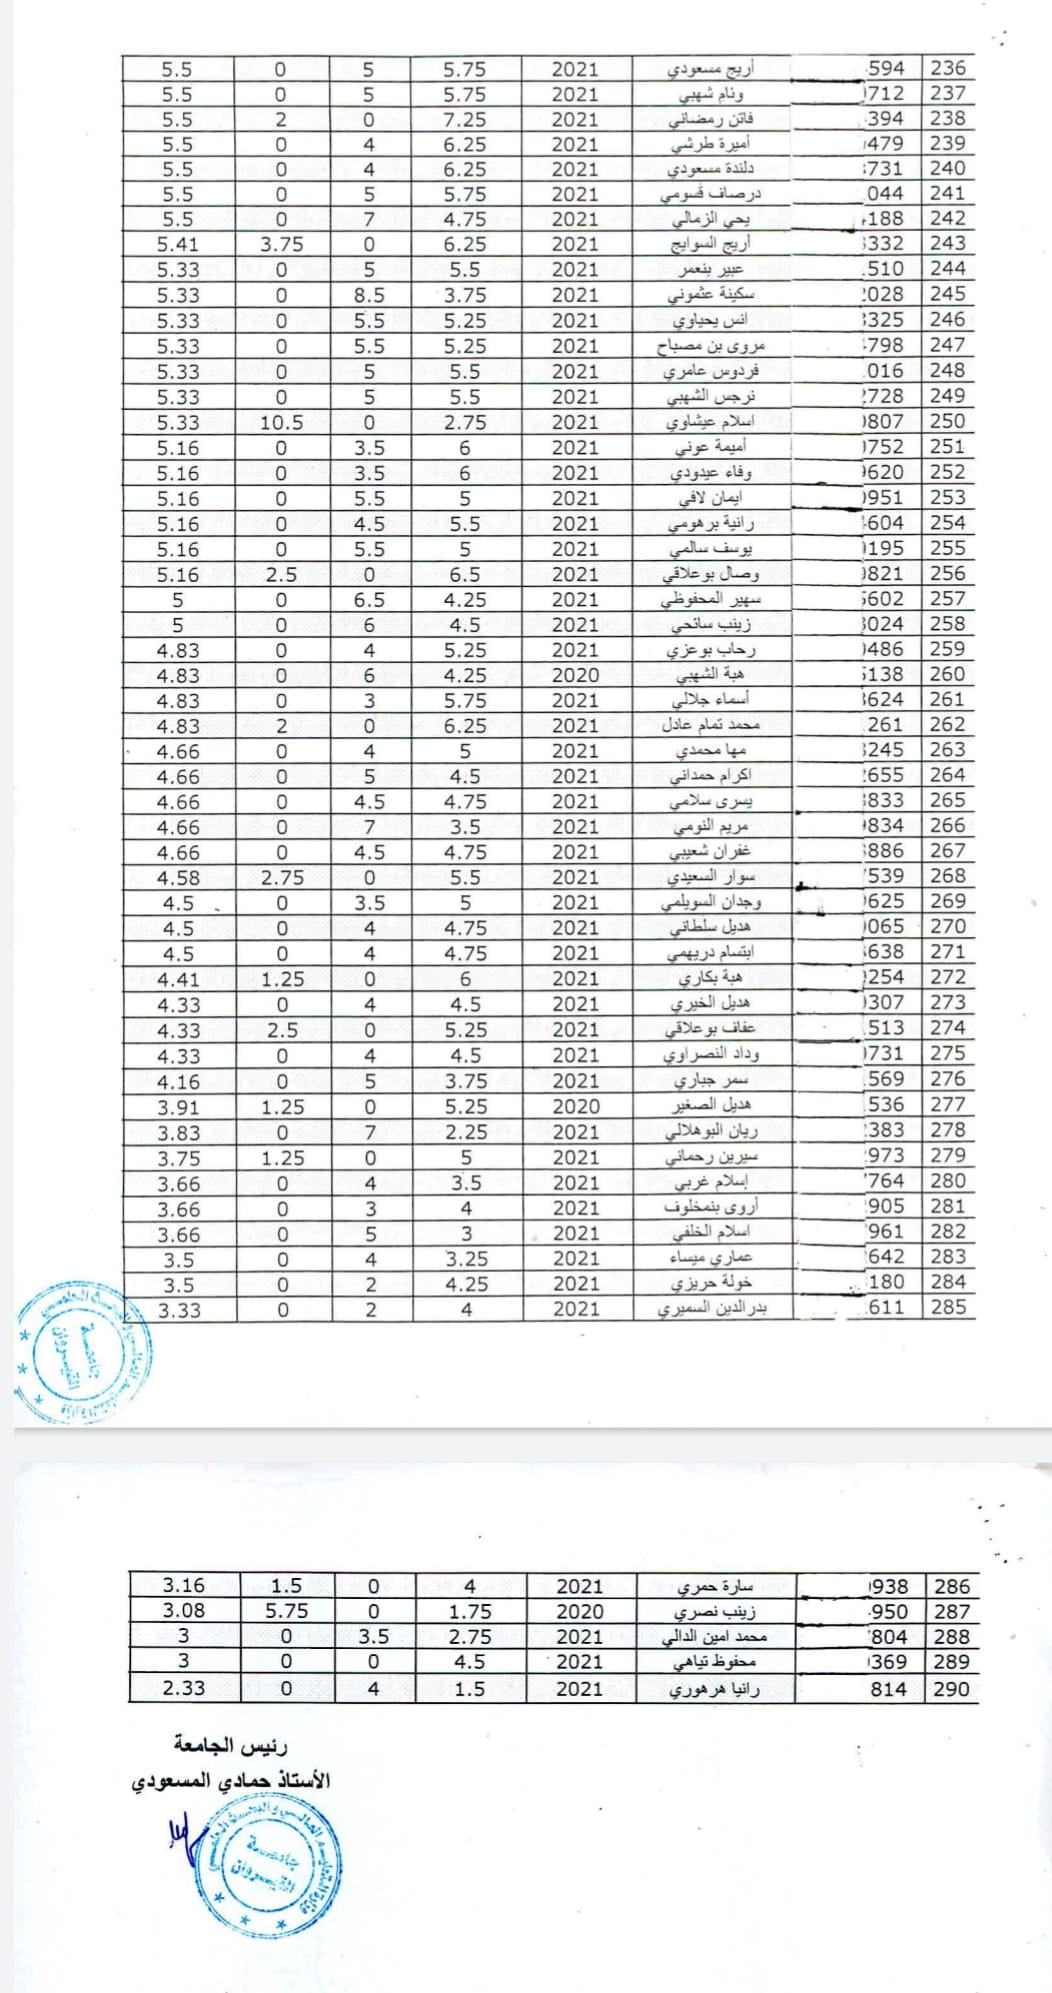 236 594 أريج مسعودي 2021 5.75 5 0 5.5
237 712 وئام شهبي 2021 5.75 5 0 5.5
238 394 فاتن رمضاني 2021 7.25 0 2 5.5
239 479 أميرة طرشي 2021 6.25 4 0 5.5
240 731 دلندة مسعودي 2021 6.25 4 0 5.5
241 044 درصاف قسومي 2021 5.75 5 0 5.5
242 188 يحي الزمالي 2021 4.75 7 0 5.5
243 332 أريج السوايح 2021 6.25 0 3.75 5.41
244 510 عبير بنعمر 2021 5.5 5 0 5.33
245 028 سكينة عثموني 2021 3.75 8.5 0 5.33
246 325 انس يحياوي 2021 5.25 5.5 0 5.33
247 798 مروى بن مصباح 2021 5.25 5.5 0 5.33
248 016 فردوس عامري 2021 5.5 5 0 5.33
249 728 نرجس الشهبي 2021 5.5 5 0 5.33
250 807 اسلام عيشاوي 2021 2.75 0 10.5 5.33
251 752 أميمة عوني 2021 6 3.5 0 5.16
252 620 وفاء عبدودي 2021 6 3.5 0 5.16
253 951 ايمان لافي 2021 5 5.5 0 5.16
254 604 رانية برهومي 2021 5.5 4.5 0 5.16
255 195 يوسف سالمي 2021 5 5.5 0 5.16
256 821 وصال بوعلاقي 2021 6.5 0 2.5 5.16
257 602 سهير المحفوظي 2021 4.25 6.5 0 5
258 024 زينب سائحي 2021 4.5 6 0 5
259 486 رحاب بوعزي 2021 5.25 4 0 4.83
260 138 هبة الشهبي 2020 4.25 6 0 4.83
261 624 أسماء جلالي 2021 5.75 3 0 4.83
262 261 محمد تمام عادل 2021 6.25 0 2 4.83
263 245 مها محمدي 2021 5 4 0 4.66
264 655 اكرام حمداني 2021 4.5 5 0 4.66
265 833 يسرى سلامي 2021 4.75 4.5 0 4.66
266 834 مريم النومي 2021 3.5 7 0 4.66
267 886 غفران شعيبي 2021 4.75 4.5 0 4.66
268 539 سوار السعيدي 2021 5.5 0 2.75 4.58
269 625 وجدان السويلمي 2021 5 3.5 0 4.5
270 065 هديل سلطاني 2021 4.75 4 0 4.5
271 638 ابتسام دريهمي 2021 4.75 4 0 4.5
272 254 هبة بكاري 2021 6 0 1.25 4.41
273 307 هديل الخيري 2021 4.5 4 0 4.33
274 513 عفاف بوعلاقي 2021 5.25 0 2.5 4.33
275 731 وداد النصراوي 2021 4.5 4 0 4.33
276 569 سمر جباري 2021 3.75 5 0 4.16
277 536 هديل الصغير 2020 5.25 0 1.25 3.91
278 383 ريان البوهلالي 2021 2.25 7 0 3.83
279 973 سيرين رحماني 2021 5 0 1.25 3.75
280 764 إسلام غربي 2021 3.5 4 0 3.66
281 905 أروى بنمخلوف 2021 4 3 0 3.66
282 961 اسلام الخلفي 2021 3 5 0 3.66
283 642 عماري ميساء 2021 3.25 4 0 3.5
284 180 خولة حريزي 2021 4.25 2 0 3.5
285 611 بدرالدين السميري 2021 4 2 0 3.33
جامعة
القيروان
286 938 سارة حمري 2021 4 0 1.5 3.16
287 950 زينب نصري 2020 1.75 0 5.75 3.08
288 804 محمد امين الدالي 2021 2.75 3.5 0 3
289 369 محفوظ تباهي 2021 4.5 0 0 3
290 814 رانيا هرهوري 2021 1.5 4 0 2.33
رئيس الجامعة
الأستاذ حمادي المسعودي
جامعة
القيروان